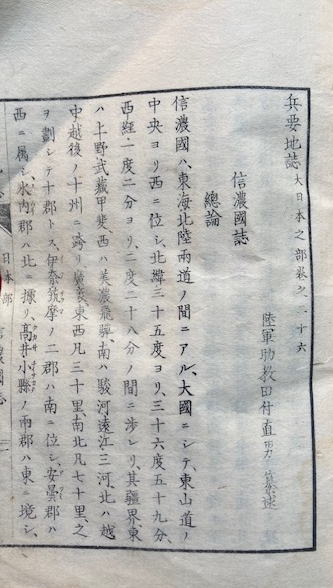 兵要地誌 大日本之部巻之二十六
陸軍助教田付直男纂述
信濃國誌
總論
信濃國ハ、東海北陸兩道ノ間ニアル、大國ニシテ、東山道ノ
中央ヨリ西ニ位シ、北緯三十五度ヨリ、三十六度五十九分、
西経一度二分ヨリ、二度二十八分ノ間ニ渉レリ、其疆界、東
ハ上野武藏甲斐、西ハ美濃飛驒、南ハ駿河遠江三河、北ハ越
中越後ノ十州ニ跨リ、廣袤東西凡三十里、南北凡七十里、之
ヲ劃シテ十郡トス、伊奈筑摩ノ二郡ハ南ニ位シ、安曇郡ハ
西ニ属シ、水内郡ハ北ニ據リ、高井小縣ノ兩郡ハ東ニ境シ、
日本部 信濃國誌